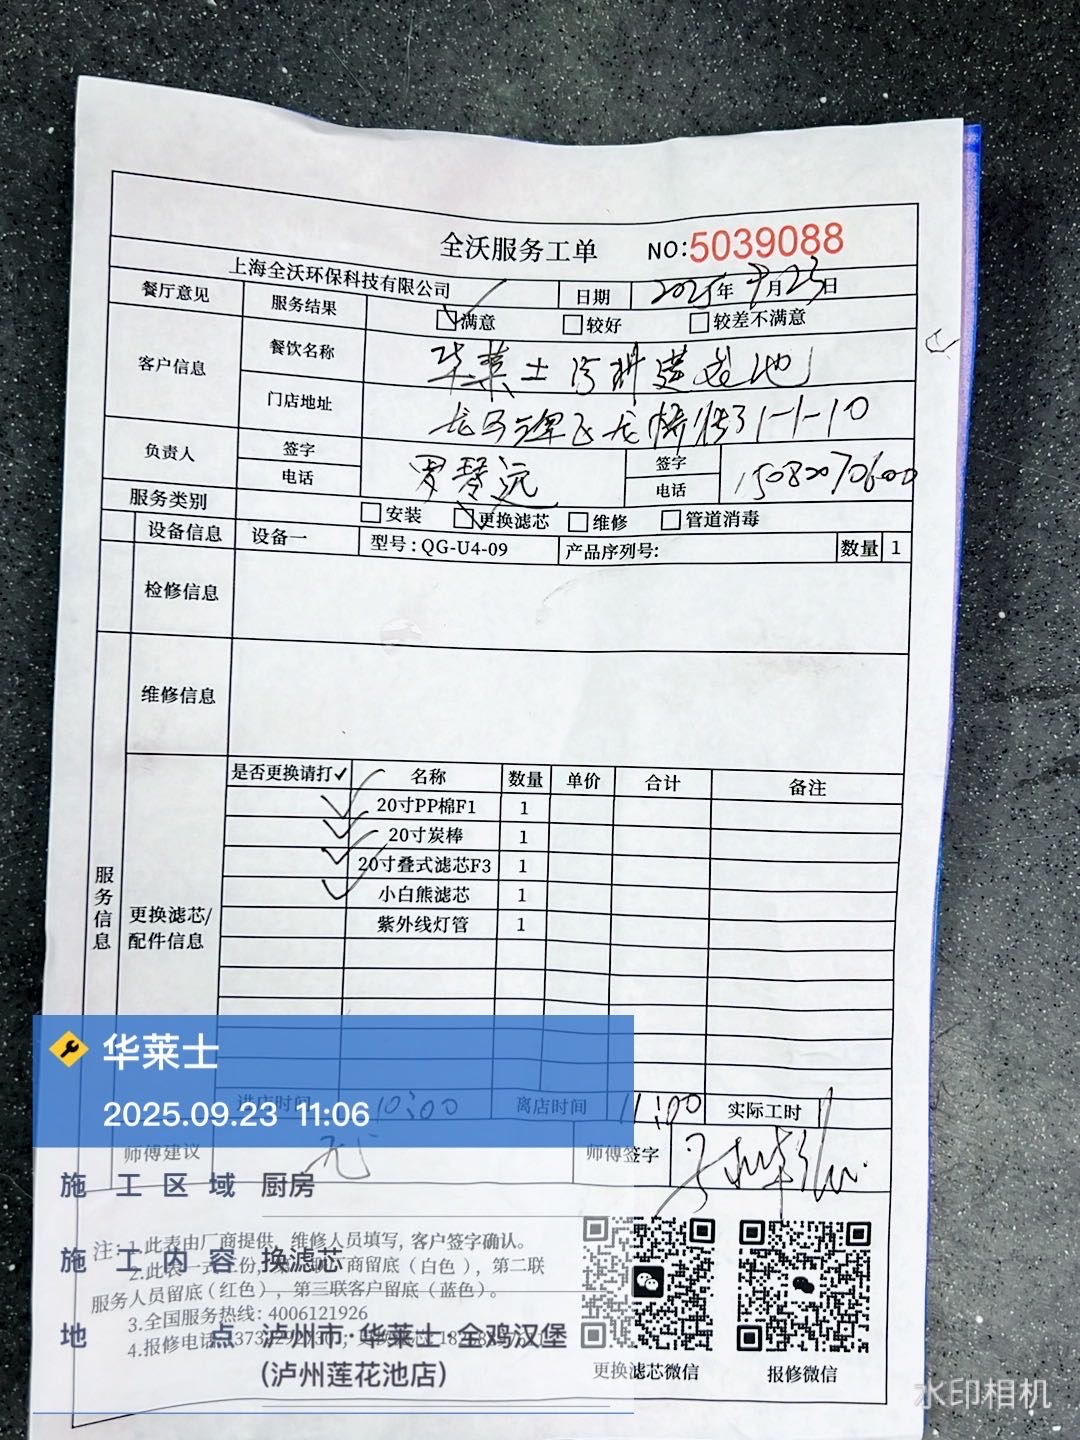 全沃服务工单 NO:5039088
上海全沃环保科技有限公司 日期 2025年9月23日
餐厅意见 服务结果 满意 较好 较差不满意
客户信息 餐饮名称 华莱士 莲花池
门店地址 31-1-10
负责人 签字 签字
电话 罗琴远 电话 15082070600
服务类别 安装 更换滤芯 维修 管道消毒
设备信息 设备一 型号:QG-U4-09 产品序列号: 数量 1
检修信息
维修信息
服务信息
更换滤芯/配件信息
是否更换请打✓ 名称 数量 单价 合计 备注
✓ 20寸PP棉F1 1
✓ 20寸炭棒 1
✓ 20寸叠式滤芯F3 1
✓ 小白熊滤芯 1
紫外线灯管 1
进店时间 10:00 离店时间 11:00 实际工时 1
师傅建议 无 师傅签字
注: 1.此表由厂商提供，维修人员填写,客户签字确认。
2.此表一式三份, 商留底(白色), 第二联
服务人员留底(红色), 第三联客户留底(蓝色)。
3.全国服务热线: 4006121926
4.报修电话
更换滤芯微信 报修微信
华莱士
2025.09.23 11:06
施工区域 厨房
施工内容 换滤芯
地点 泸州市·华莱士·全鸡汉堡
(泸州莲花池店)
水印相机